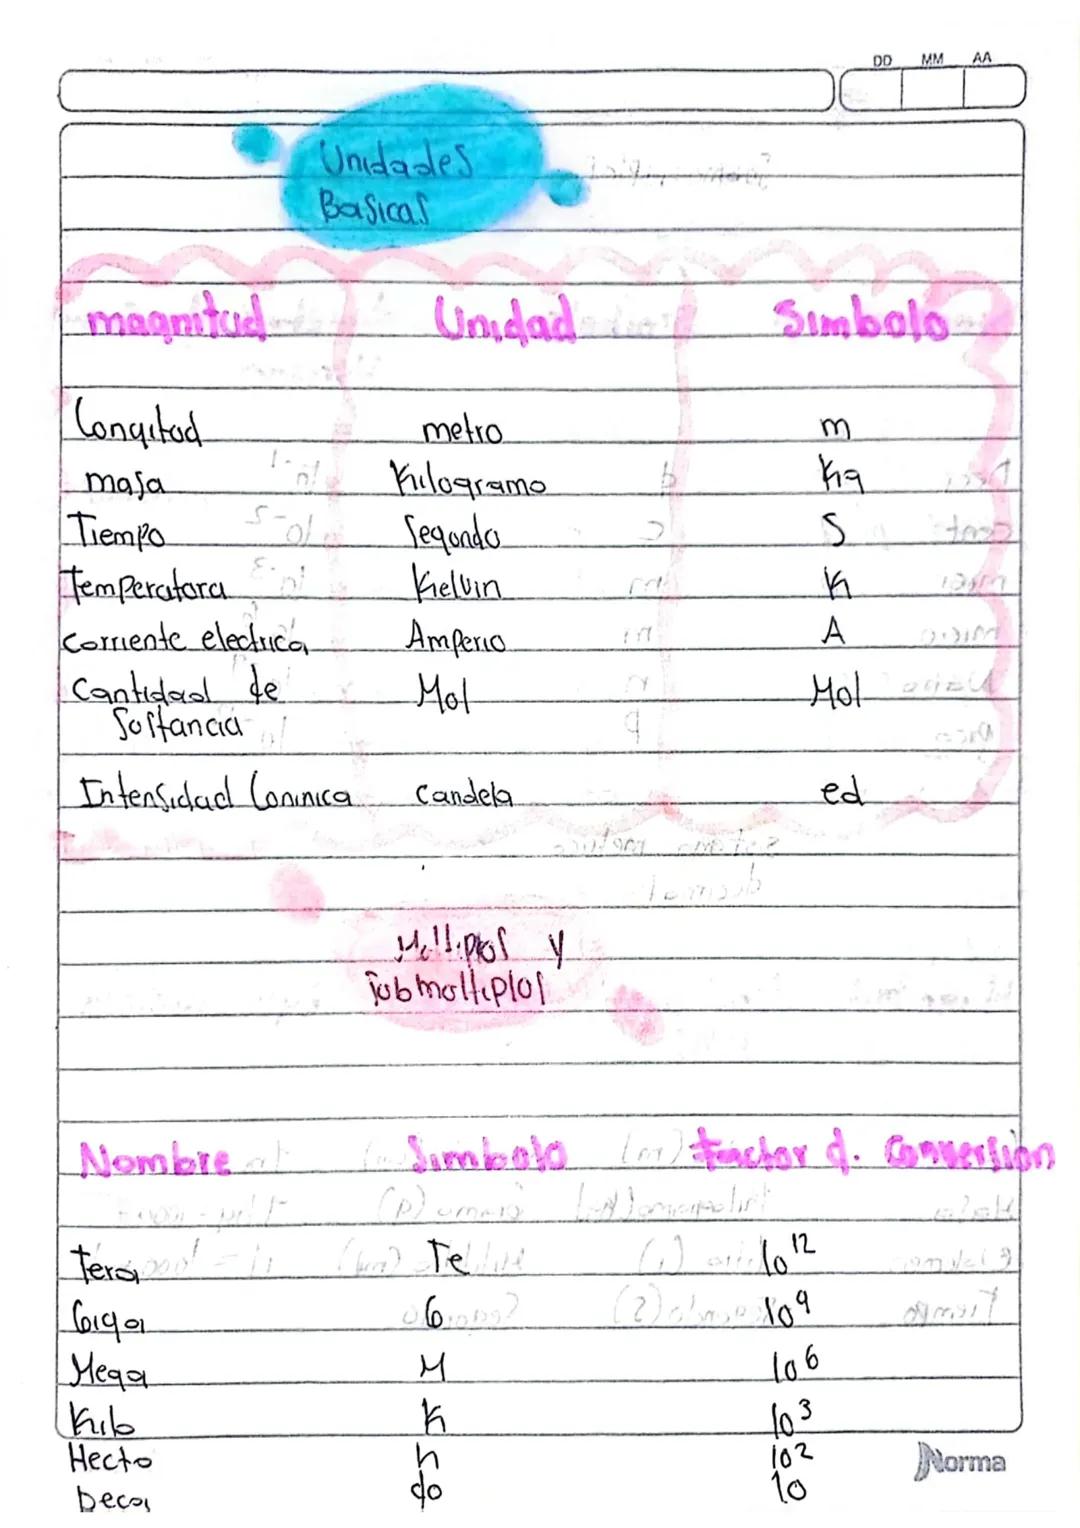 DD MM AA
Unidades
Basicas
magnitud Unidad Simbolo
Longitud metro m
masa Kilogramo Kg
Tiempo Segundo S
Temperatura Kielvin K
corriente electrica Amperio A
Cantidad de Mol Mol
Sustancia
Intensidad Luminica candela ed
Multiplos y
Submultiplos
Nombre Simbolo Factor d. Conversion
Tera Te 10¹²
Giga G 10⁹
Mega M 10⁶
Kilo K 10³
Hecto h 10²
Deca da 10
Norma